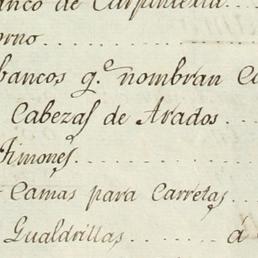 anco de Carpinteria....
orno..................
bancos q.e nombran Ca
Cabezas de Arados...
Timones.............
Camas para Carretas..
Gualdrillas....... a